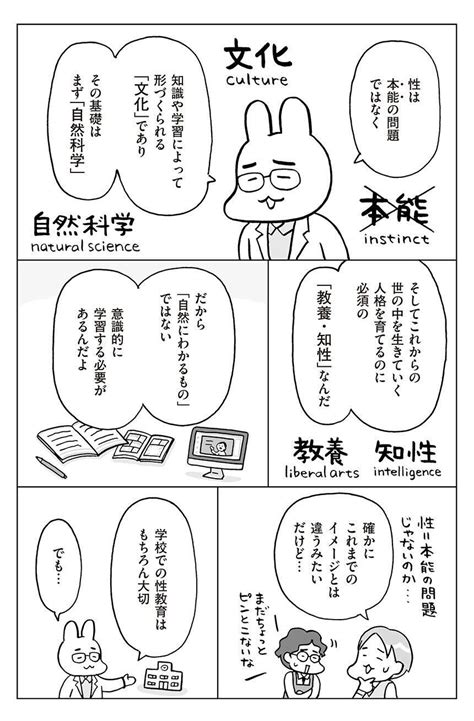 性は
本能の問題
ではなく
文化
culture
知識や学習によって
形づくられる
「文化」であり
その基礎は
まず「自然科学」
本能
instinct
自然科学
natural science
そしてこれからの
世の中を生きていく
人格を育てるのに
必須の
「教養・知性」なんだ
教養
liberal arts
知性
intelligence
だから
「自然にわかるもの」
ではない
意識的に
学習する必要が
あるんだよ
性=本能の問題
じゃないのか…
確かに
これまでの
イメージとは
違うみたい
だけど…
まだちょっと
ピンとこないな
学校での性教育は
もちろん大切
でも…